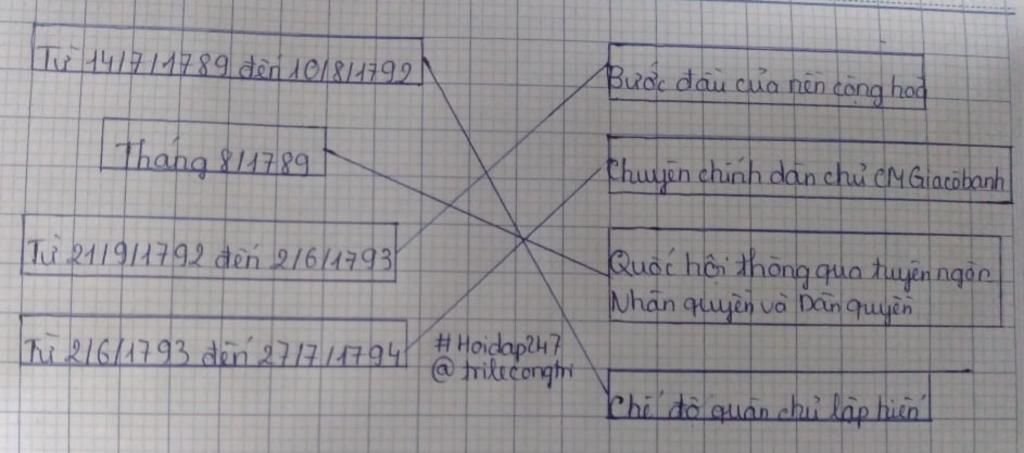 Từ 14/7/1789 đến 10/8/1792
Tháng 8/1789
Từ 21/9/1792 đến 2/6/1793
Từ 2/6/1793 đến 27/7/1794
Bước đầu của nền công hoà
Chuyên chính dân chủ CM Giacôbanh
Quốc hội thông qua tuyên ngôn
Nhân quyền và Dân quyền
Chế độ quân chủ lập hiến
#Hoidap247
@trilecongtri